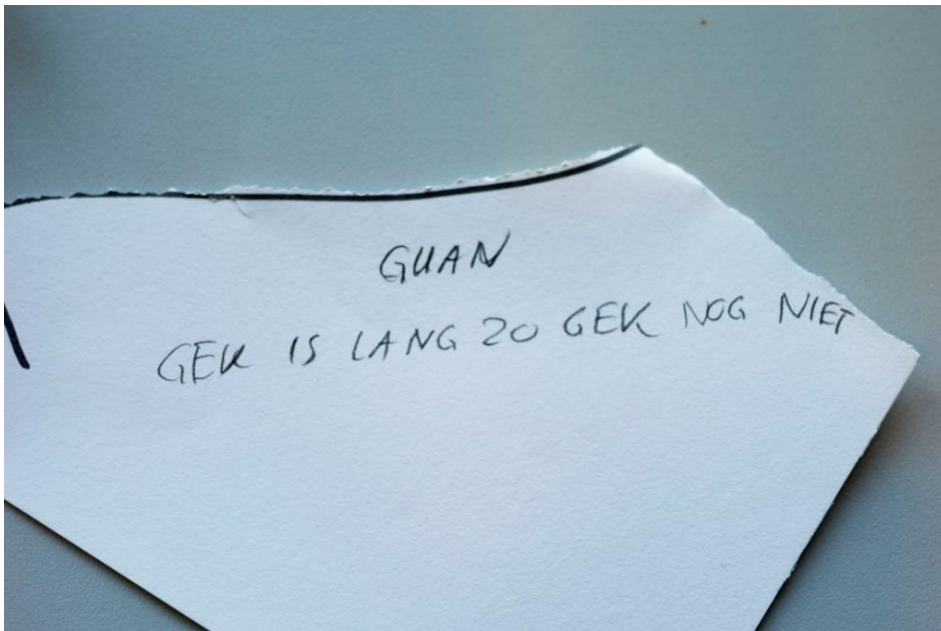 GUAN
GEK IS LANG ZO GEK NOG NIET